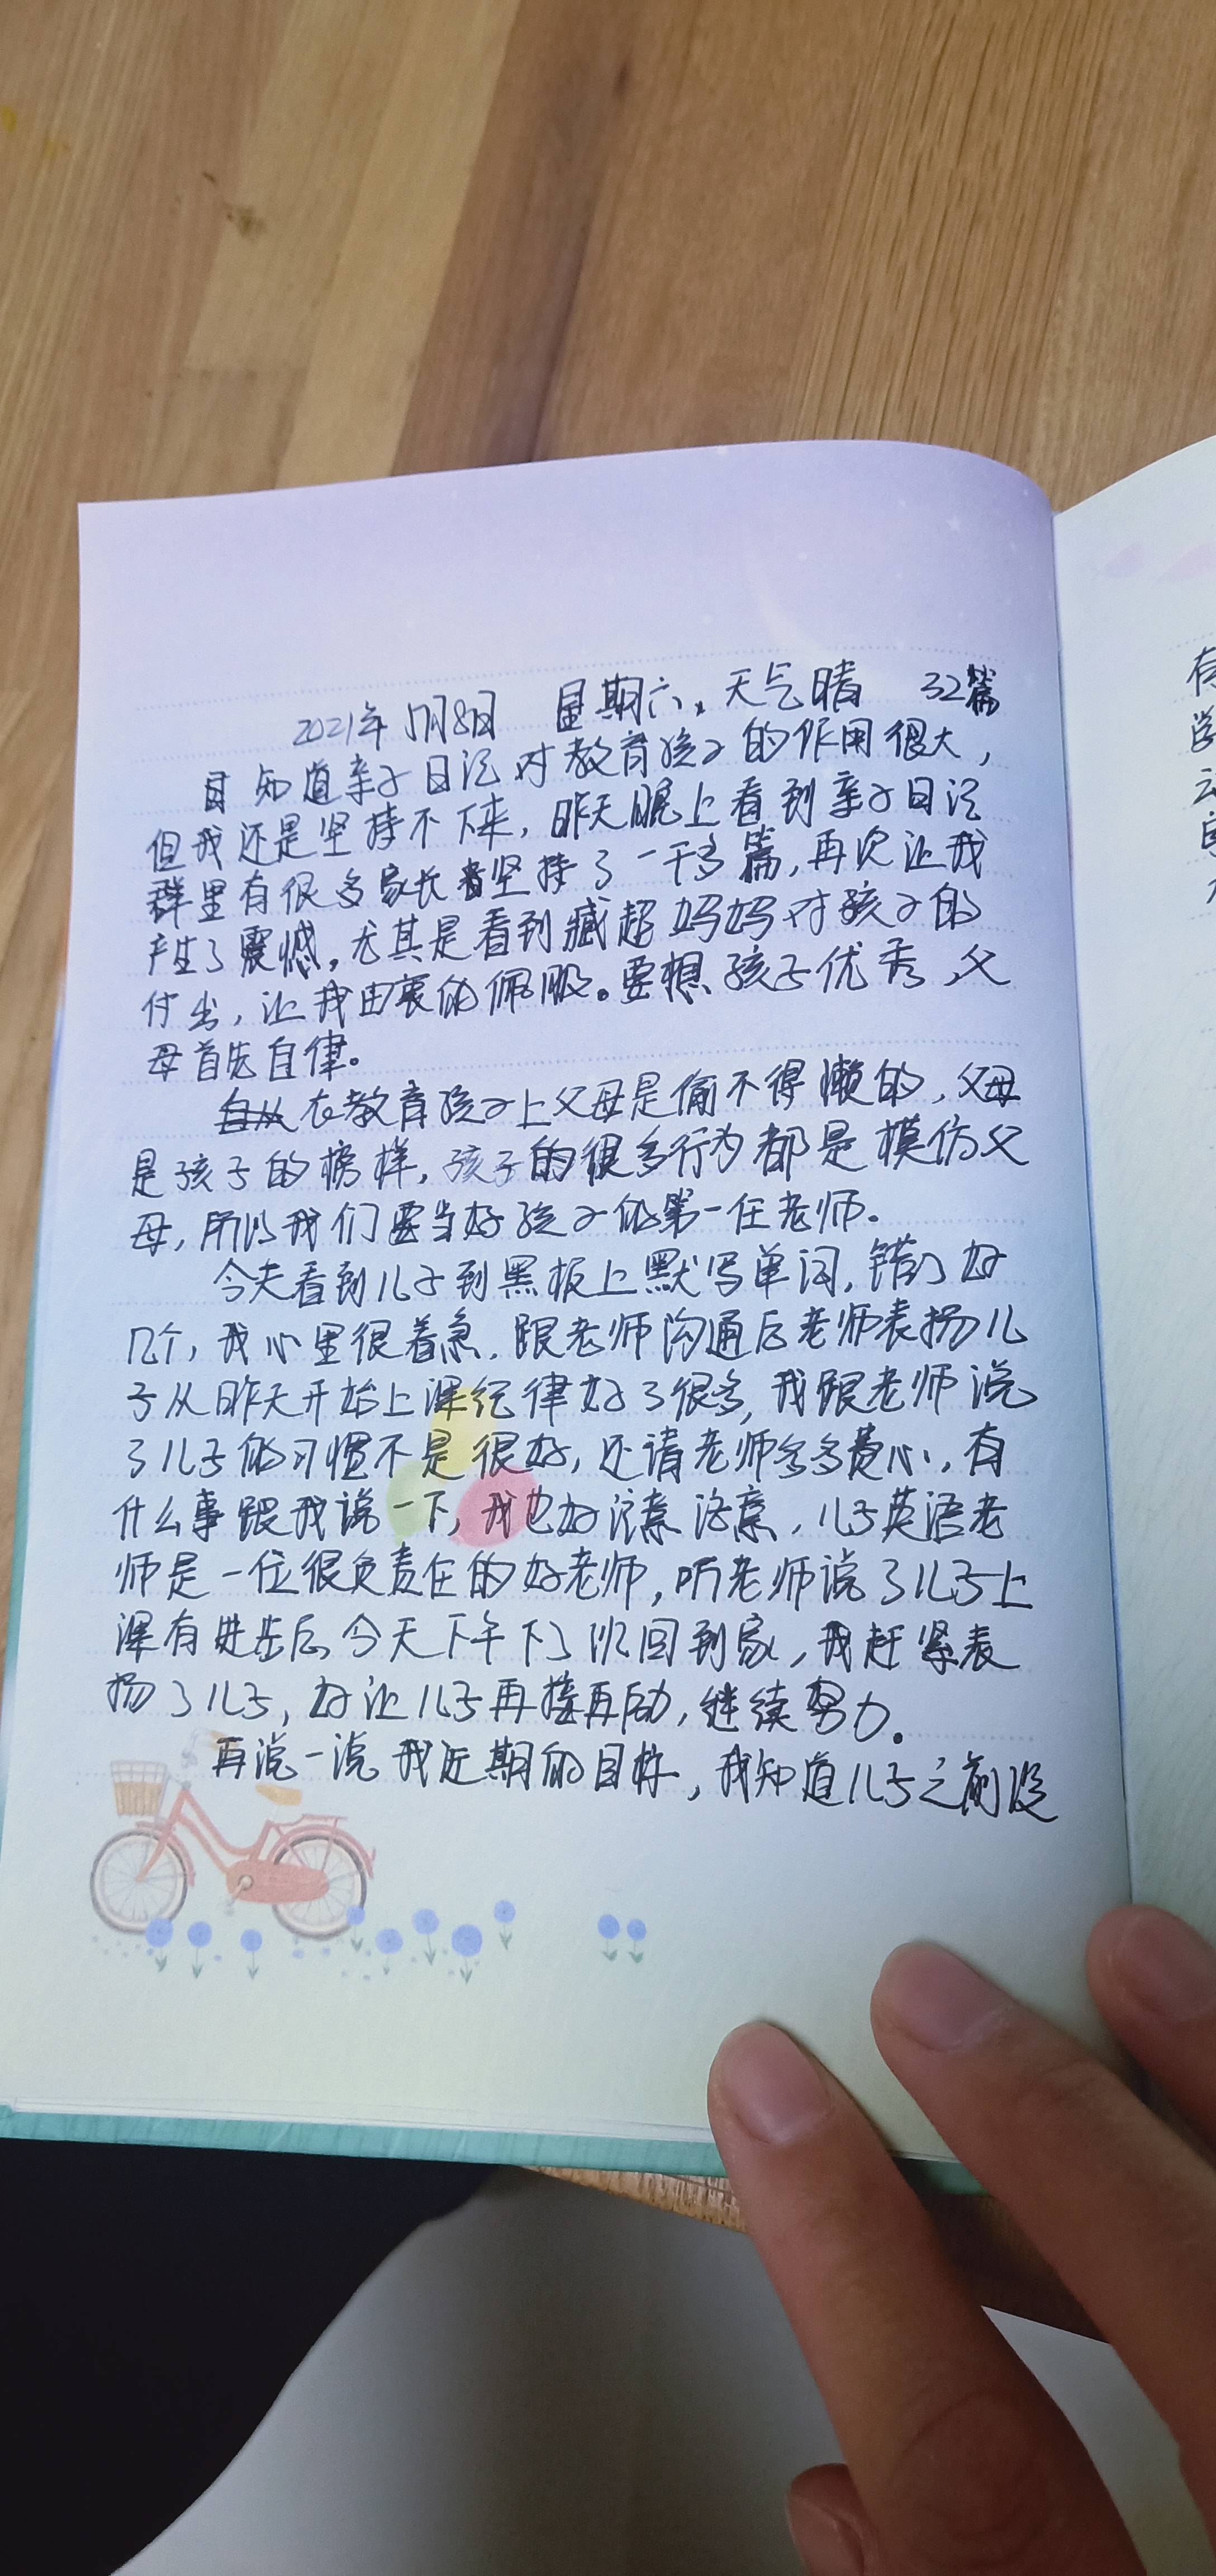 2021年 月8日 星期六 天气晴 32篇
知道亲子日记对教育孩子的作用很大，
但我还是坚持不下来，昨天晚上看到亲子日记
群里有很多家长都坚持了一千多篇，再次让我
产生了震憾，尤其是看到臧超妈妈对孩子的
付出，让我由衷的佩服。要想孩子优秀，父
母首先自律。
在教育孩子上父母是偷不得懒的，父母
是孩子的榜样，孩子的很多行为都是模仿父
母，所以我们要当好孩子的第一任老师。
今天看到儿子到黑板上默写单词，错了好
几个，我心里很着急，跟老师沟通后老师表扬儿
子从昨天开始上课纪律好了很多，我跟老师说
了儿子的习惯不是很好，还请老师多多费心，有
什么事跟我说一下，我也好注意注意，儿子英语老
师是一位很负责任的好老师，听老师说了儿子上
课有进步后，今天下午下了班回到家，我赶紧表
扬了儿子，好让儿子再接再励，继续努力。
再说一说我近期的目标，我知道儿子之前没
有
学